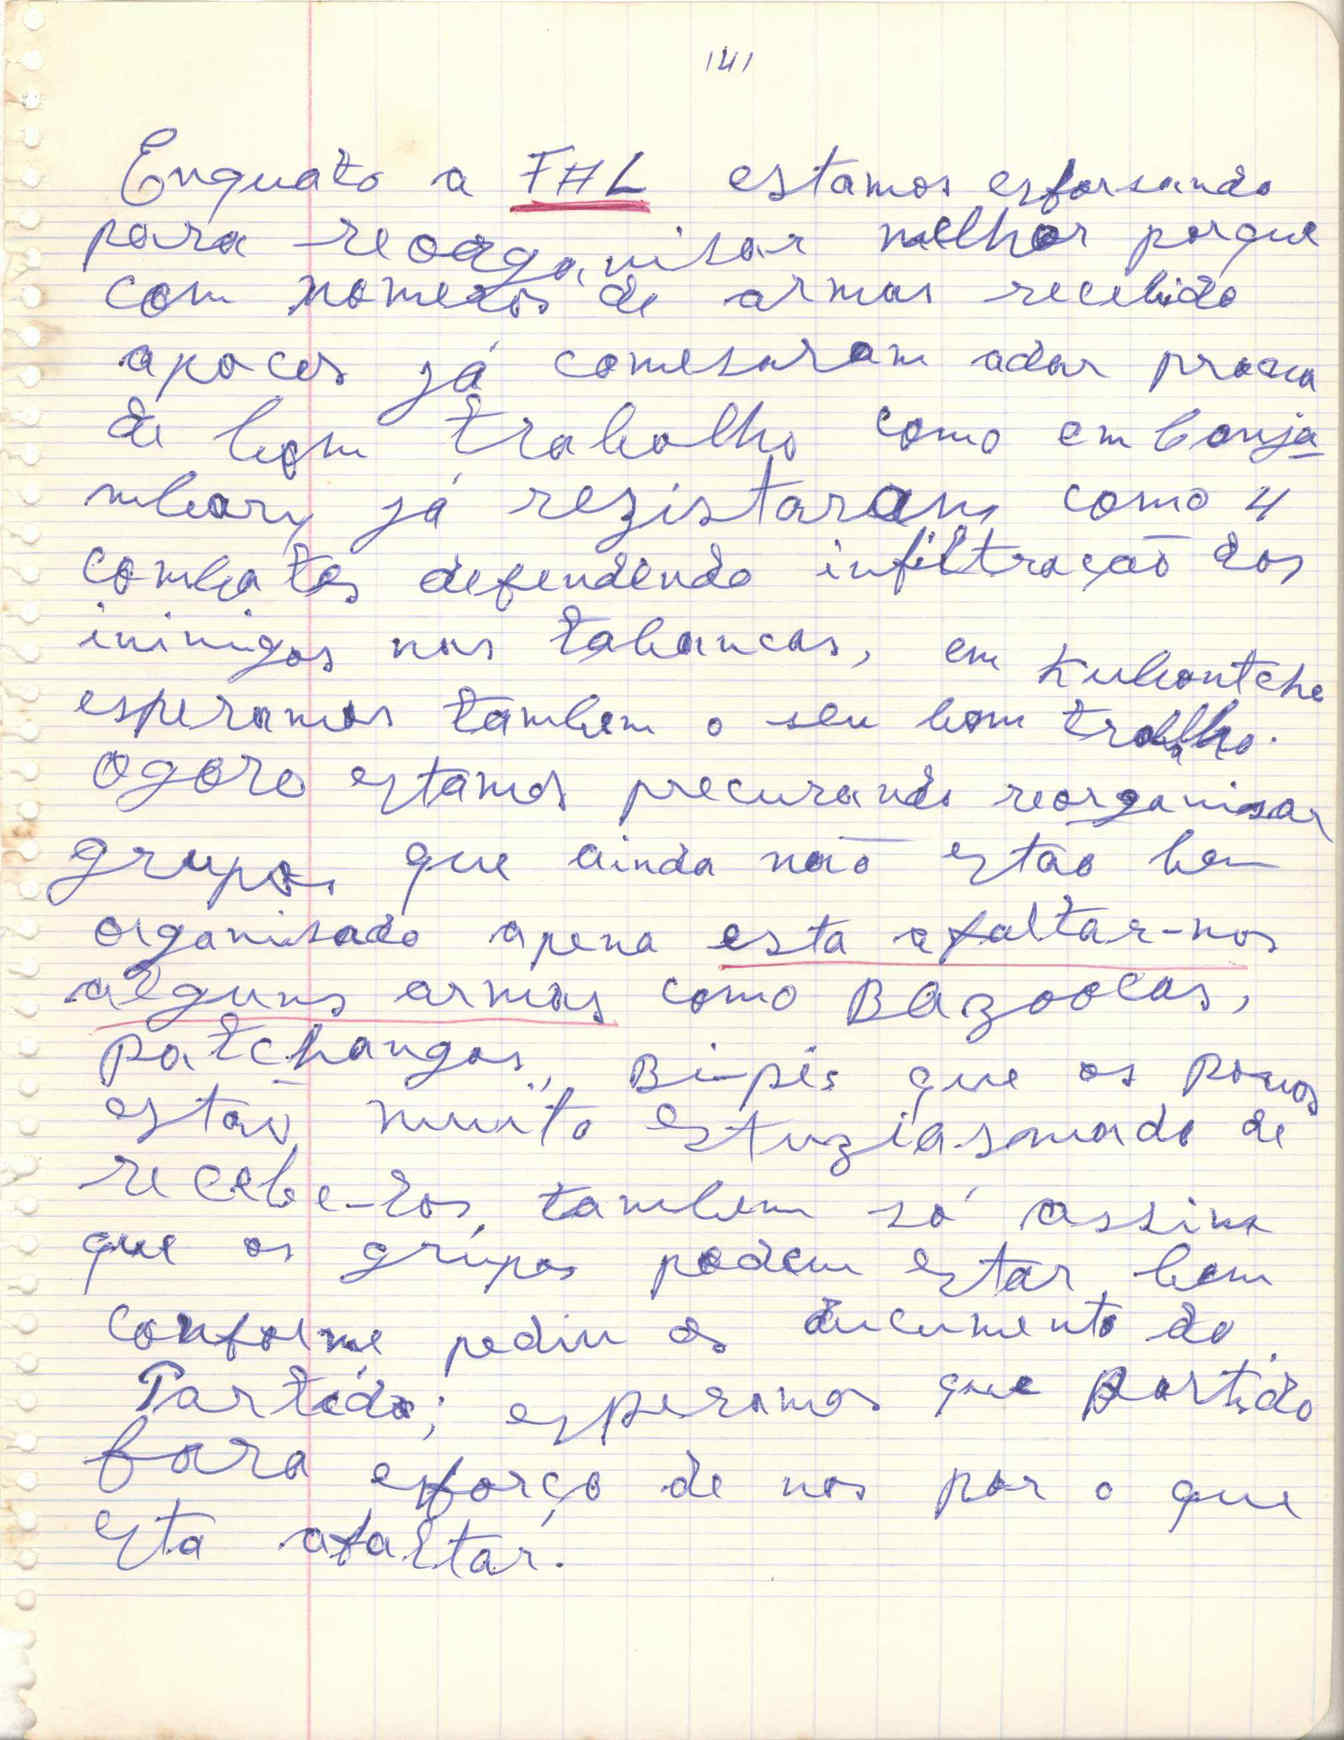 141
Enquato a FAL estamos esforsando
para reorganisar melhor porque
com nomeros de armas recebido
apoces já comesaram adar prova
de bom trabalho como em Canja
mbary já rezistaram como 4
combates defendendo infiltração dos
inimigos nas tabancas, em Kubontche
esperamos tambem o seu bom trabalho.
Ogora estamos precurando reorganisar
grupos que ainda não estão bem
organisado apena esta afaltar-nos
alguns armas como Bazoocas,
patchangas, Bi-pés que os povos
estão muito estuziasmado de
recebe-los, tambem só assim
que os grupos podem estar bem
conforme pediu os ducumento do
Partido; esperamos que partido
fara esforço de nos por o que
esta afaltar.